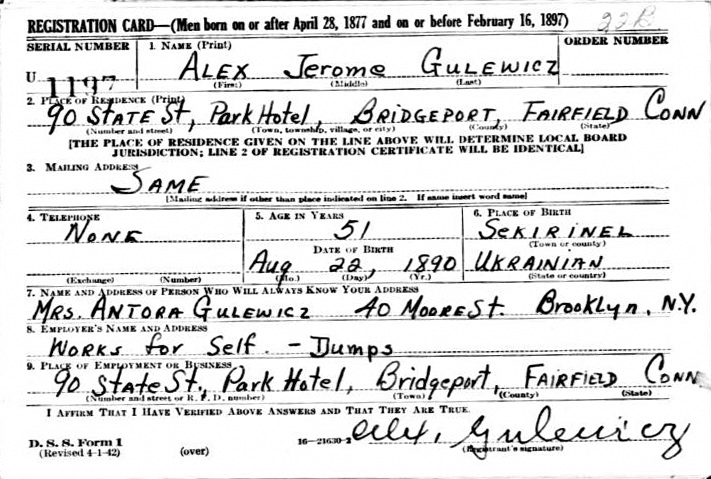 REGISTRATION CARD—(Men born on or after April 28, 1877 and on or before February 16, 1897) 22B
SERIAL NUMBER 1. NAME (Print) ORDER NUMBER
U 1197 ALEX Jerome GULEWICZ
(First) (Middle) (Last)
2. PLACE OF RESIDENCE (Print)
90 STATE St, Park Hotel, BRIDGEPORT, FAIRFIELD CONN
(Number and street) (Town, township, village, or city) (County) (State)
[THE PLACE OF RESIDENCE GIVEN ON THE LINE ABOVE WILL DETERMINE LOCAL BOARD
JURISDICTION; LINE 2 OF REGISTRATION CERTIFICATE WILL BE IDENTICAL]
3. MAILING ADDRESS
SAME
[Mailing address if other than place indicated on line 2. If same insert word same]
4. TELEPHONE 5. AGE IN YEARS 6. PLACE OF BIRTH
NONE 51 SEKIRINEL
(Town or county)
DATE OF BIRTH
Aug 22, 1890 UKRAINIAN
(Exchange) (Number) (Mo.) (Day) (Yr.) (State or country)
7. NAME AND ADDRESS OF PERSON WHO WILL ALWAYS KNOW YOUR ADDRESS
MRS. ANTORA GULEWICZ 40 MOORE St. Brooklyn, N.Y.
8. EMPLOYER'S NAME AND ADDRESS
WORKS for Self - Dumps
9. PLACE OF EMPLOYMENT OR BUSINESS
90 State St., Park Hotel, Bridgeport, FAIRFIELD CONN
(Number and street or R. F. D. number) (Town) (County) (State)
I AFFIRM THAT I HAVE VERIFIED ABOVE ANSWERS AND THAT THEY ARE TRUE.
D. S. S. Form 1
(Revised 4-1-42) (over) 16—21630-2 Alex, Gulewicz
(Registrant's signature)